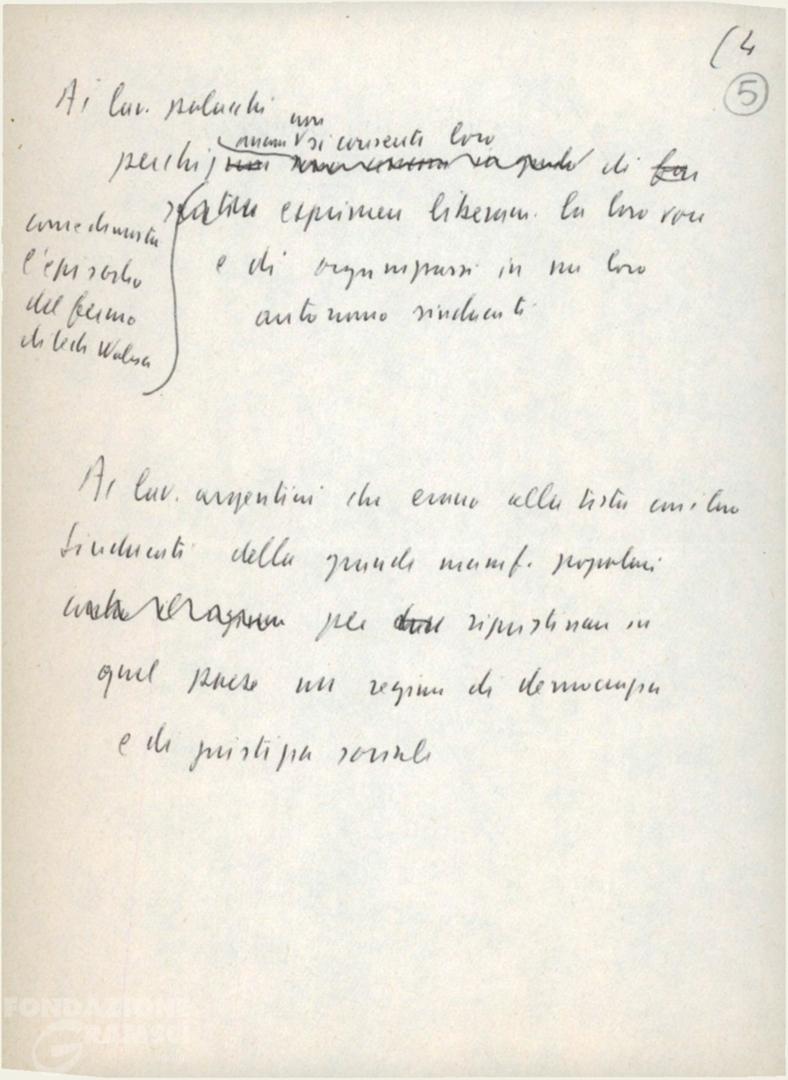 (4
5
Ai lav. polacchi
non
ancora si consente loro
perché di
esprimere liberam. la loro voce
e di organizzarsi in un loro
autonomo sindacato
come dimostra
l'episodio
del fermo
di Lech Walesa
Ai lav. argentini che erano alla testa con i loro
sindacati della grande manif. popolare
per ripristinare in
quel paese un regime di democrazia
e di giustizia sociale
FONDAZIONE
GRAMSCI